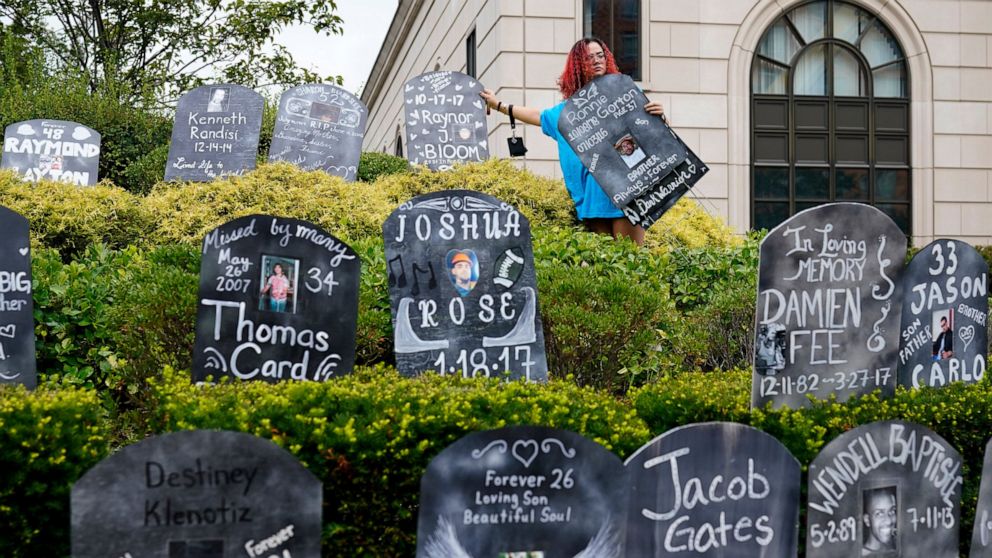 48
RAYMOND
LAYTON
Kenneth
Randisi
12-14-14
Loved Life to
52
R.I.P
10-17-17
Raynor
J.
BLOOM
Ronnie Gorton
Age 37
Always + Forever
BIG
Brother
Missed by many
May
26
2007
34
Thomas
Card
JOSHUA
ROSE
1·18·17
In Loving
MEMORY
DAMIEN
FEE
12-11-82 ~ 3-27-17
33
JASON
SON
BROTHER
FATHER
CARLO
Destiney
Klenotiz
Forever
Forever 26
Loving Son
Beautiful Soul
Jacob
Gates
WENDELL BAPTISTE
5·2·89
7·11·13